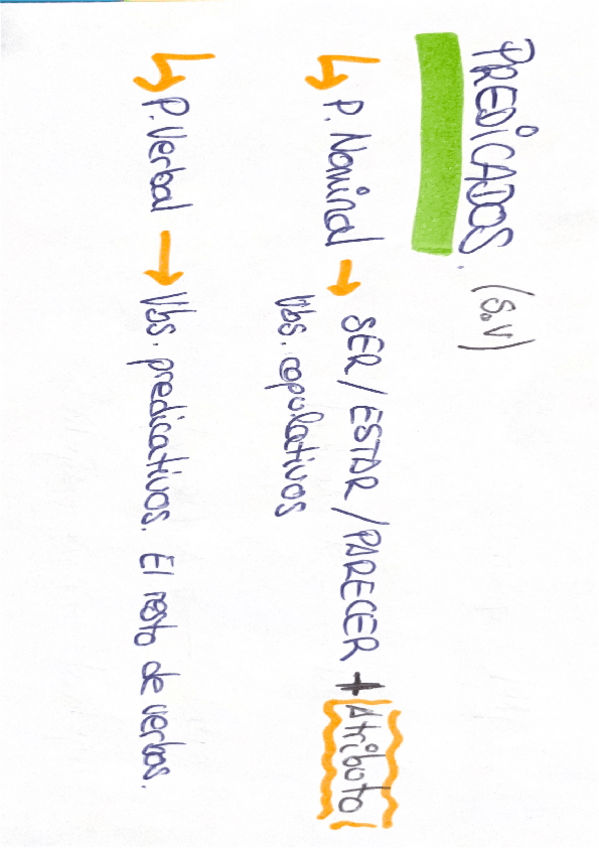 PREDICADOS. (S.V)
↳ P. Nominal → SER/ESTAR/PARECER + Atributo
Vbs. copulativos
↳ P. Verbal → Vbs. predicativos. El resto de verbos.